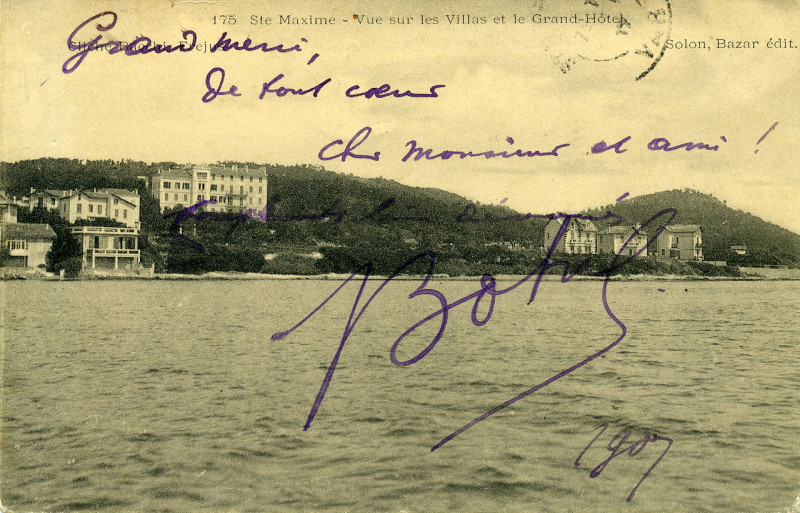 175 Ste Maxime - Vue sur les Villas et le Grand-Hôtel
Solon, Bazar édit.
Grand merci,
de tout cœur
Cher Monsieur et ami !
dévoué
1907